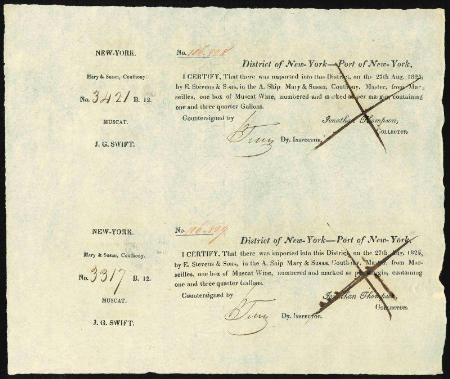 NEW-YORK.
No. 106.898
District of New-York—Port of New-York.
Mary & Susan, Coutlouy.
I CERTIFY, That there was imported into this District, on the 27th Aug. 1825,
by E. Stevens & Sons, in the A. Ship Mary & Susan, Coutlouy, Master, from Mar-
No. 3421 B. 12.
seilles, one box of Muscat Wine, numbered and marked as per margin, containing
one and three quarter Gallons.
MUSCAT.
Countersigned by
Jonathan Thompson,
Dy. INSPECTOR.
COLLECTOR.
J. G. SWIFT.
NEW-YORK.
No. 106.899
District of New-York—Port of New-York.
Mary & Susan, Coutlouy.
I CERTIFY, That there was imported into this District, on the 27th Aug. 1825,
by E. Stevens & Sons, in the A. Ship Mary & Susan, Coutlouy, Master, from Mar-
No. 3317 B. 12.
seilles, one box of Muscat Wine, numbered and marked as per margin, containing
one and three quarter Gallons.
MUSCAT.
Countersigned by
Jonathan Thompson,
Dy. INSPECTOR.
COLLECTOR.
J. G. SWIFT.